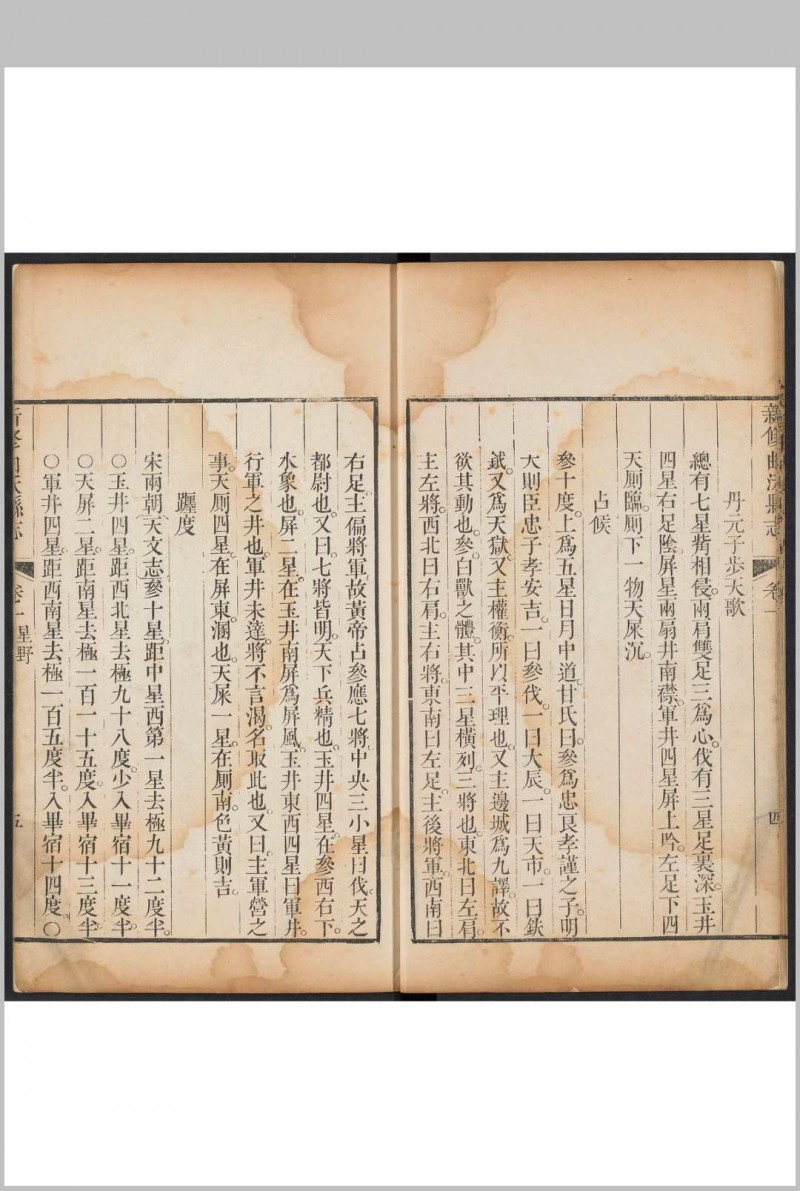 新修曲沃縣志 卷 四
丹元子步天歌
總有七星觜相侵兩肩雙足三爲心伐有三星足裏深玉井
四星右足陰屏星兩扇井南襟軍井四星屏上吟左足下四
天厠臨厠下一物天屎沉
占候
參十度上爲五星日月中道甘氏曰參爲忠良孝謹之子明
大則臣忠子孝安吉一曰參伐一曰大辰一曰天市一曰鈇
鉞又爲天獄又主權衡所以平理也又主邊城爲九譯故不
欲其動也參白獸之體其中三星橫列三將也東北曰左肩
主左將西北曰右肩主右將東南曰左足主後將軍西南曰
右足主偏將軍故黃帝占參應七將中央三小星曰伐天之
都尉也又曰七將皆明天下兵精也玉井四星在參西右下
水象也屏二星在玉井南屏爲屏風玉井東西四星曰軍井
行軍之井也軍井未達將不言渴名取此也又曰主軍營之
事天厠四星在屏東溷也天屎一星在厠南色黃則吉
躔度
宋兩朝天文志參十星距中星西第一星去極九十二度半
○玉井四星距西北星去極九十八度少入畢宿十一度半
○天屏二星距南星去極一百一十五度入畢宿十三度半
○軍井四星距西南星去極一百五度半入畢宿十四度○
新修曲沃縣志 卷二 星野 五